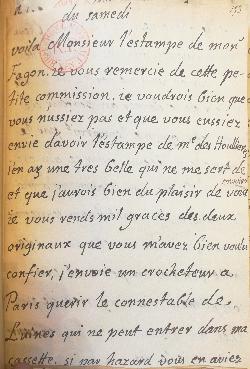 du samedi
voila Monsieur l'estampe de mon
Fagon. ie vous remercie de cette pe
tite commission, ie voudrois bien que
vous n'ussiez pas et que vous eussiez
envie d'avoir l'estampe de me des Houlieres
j'en ay une tres belle qui ne me sert de
et que j'aurois bien du plaisir de
ie vous rends mil graces des deux
originaux que vous m'avez bien voulu
confier, j'envoie un crocheteur a
Paris querir le connestable de
Luines qui ne peut entrer dans ma
cassette, si par hazard vous en aviez